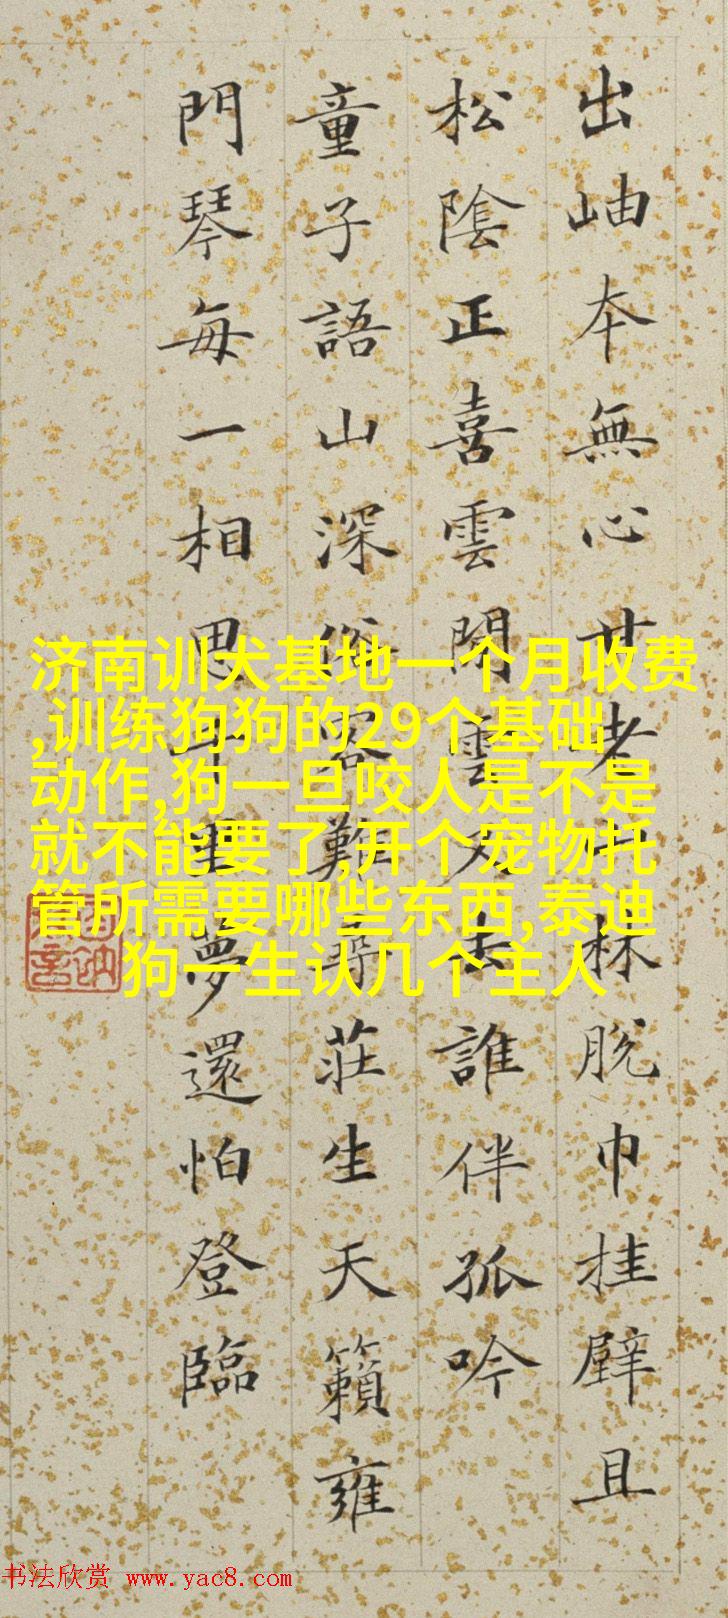 出岫本無心甘老山林脫巾挂壁且
松陰正喜雲閒雲又去誰伴孤吟
童子語山深俗客難尋莊生天籟雍
門琴每一相思千里夢還怕登臨
济南训犬基地一个月收费
,训练狗狗的29个基础
动作,狗一旦咬人是不是
就不能要了,开个宠物托
管所需要哪些东西,泰迪
狗一生认几个主人
书法欣赏 www.yac8.com